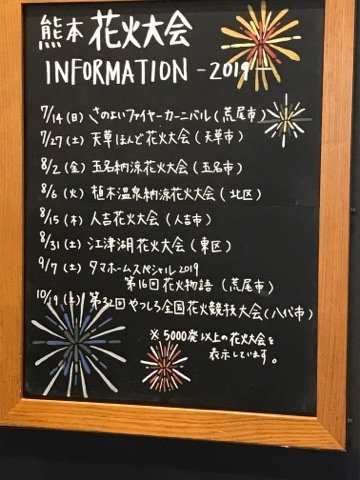 熊本 花火大会
INFORMATION -2019-
7/14(日) さのよいファイヤーカーニバル(荒尾市)
7/27(土) 天草ほんど花火大会(天草市)
8/2(金) 玉名納涼花火大会(玉名市)
8/6(火) 植木温泉納涼花火大会(北区)
8/15(木) 人吉花火大会(人吉市)
8/31(土) 江津湖花火大会(東区)
9/7(土) タマホームスペシャル2019
第16回花火物語(荒尾市)
10/19(土) 第32回やつしろ全国花火競技大会(八代市)
※5000発以上の花火大会を
表示しています。